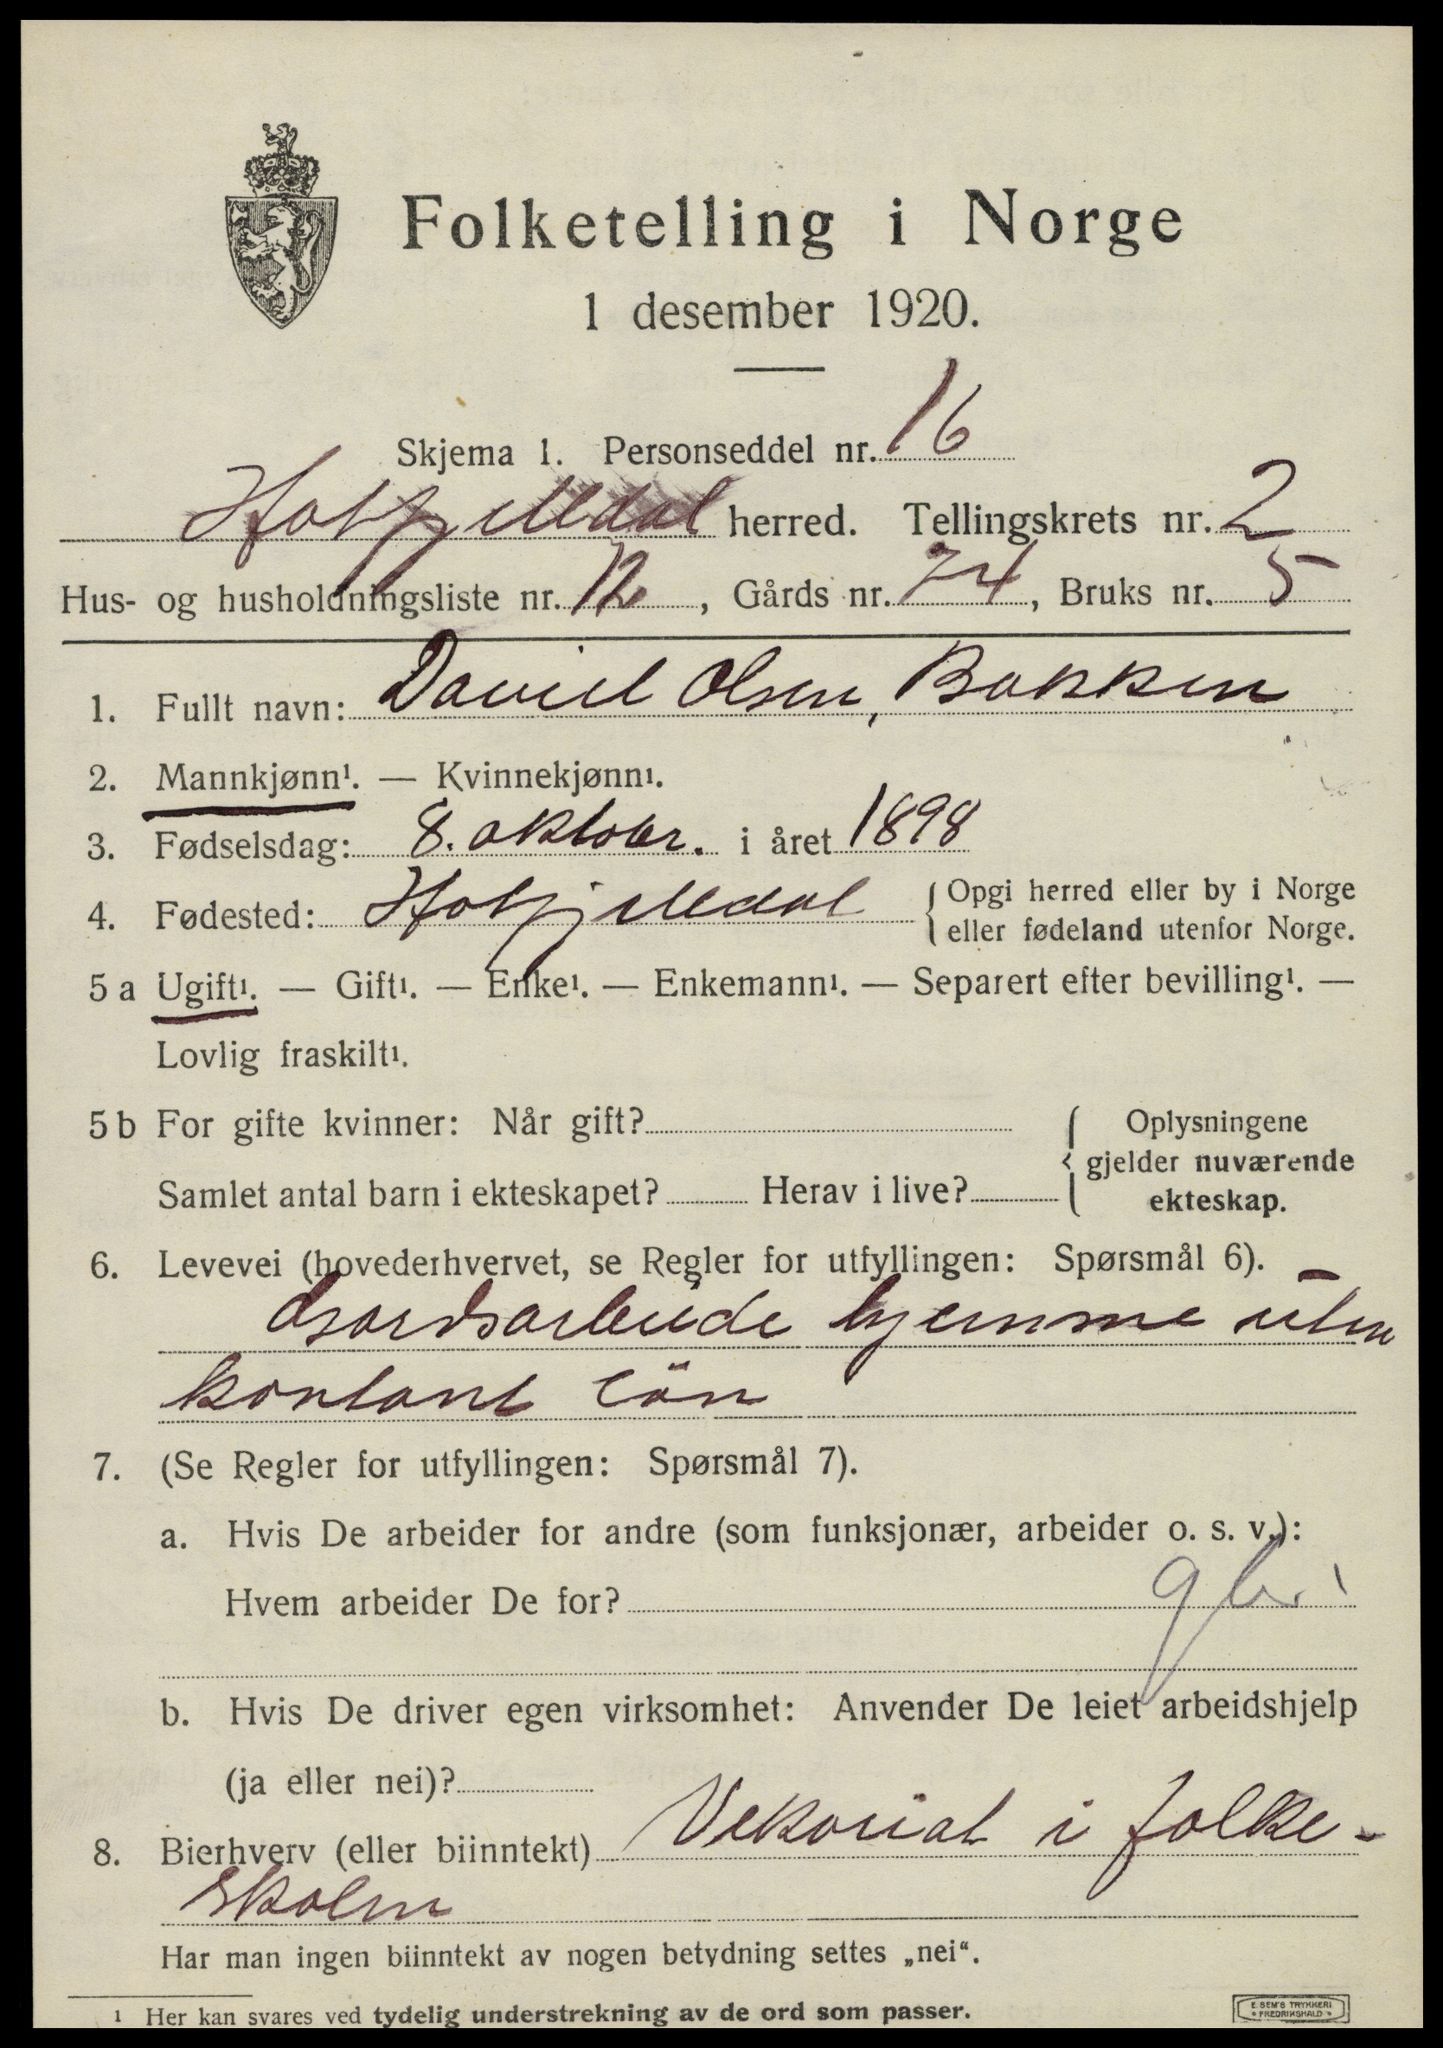 Folketelling i Norge
1 desember 1920.
Skjema 1. Personseddel nr. 16
Hatfjelldal herred. Tellingskrets nr. 2
Hus- og husholdningsliste nr. 12, Gårds nr. 74, Bruks nr. 5
1. Fullt navn: Daniel Olsen, Bakken
2. Mannkjønn¹. — Kvinnekjønn¹.
3. Fødselsdag: 8. oktober. i året 1898
4. Fødested: Hatfjelldal { Opgi herred eller by i Norge
eller fødeland utenfor Norge.
5 a Ugift¹. — Gift¹. — Enke¹. — Enkemann¹. — Separert efter bevilling¹. —
Lovlig fraskilt¹.
5 b For gifte kvinner: Når gift? { Oplysningene
gjelder nuværende
ekteskap.
Samlet antal barn i ekteskapet? Herav i live?
6. Levevei (hovederhvervet, se Regler for utfyllingen: Spørsmål 6).
Gaardsarbeide hjemme uten
kontant løn
7. (Se Regler for utfyllingen: Spørsmål 7).
a. Hvis De arbeider for andre (som funksjonær, arbeider o. s. v.):
Hvem arbeider De for?
b. Hvis De driver egen virksomhet: Anvender De leiet arbeidshjelp
(ja eller nei)?
8. Bierhverv (eller biinntekt) Vikariat i folke-
skolen
Har man ingen biinntekt av nogen betydning settes „nei“.
1 Her kan svares ved tydelig understrekning av de ord som passer.
E. SEM'S TRYKKERI
* FREDRIKSHALD *